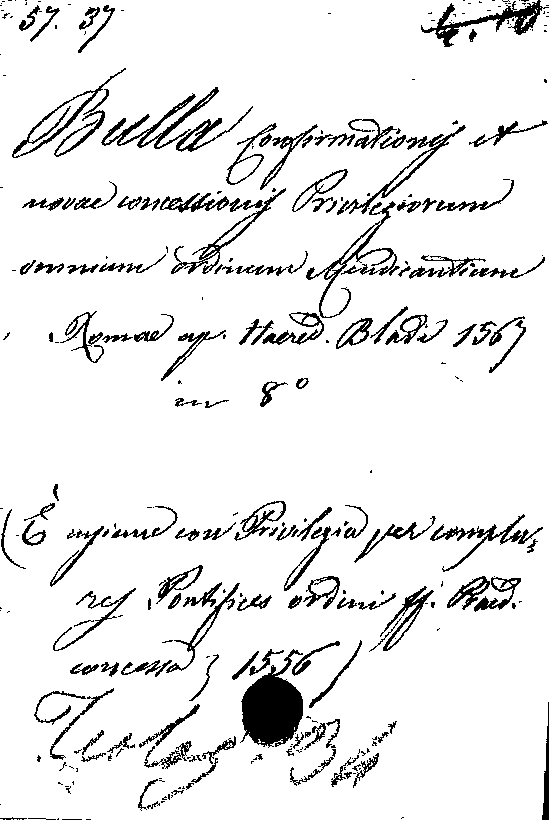 57. 37
Bulla Confirmationis et
novae concessionis Privilegiorum
omnium ordinum Mendicantium
Romae ap. Haered. Bladi 1567
in 8°
(È insieme con Privilegia per complu-
res Pontifices ordini ff. Praed.
concessa 1556)